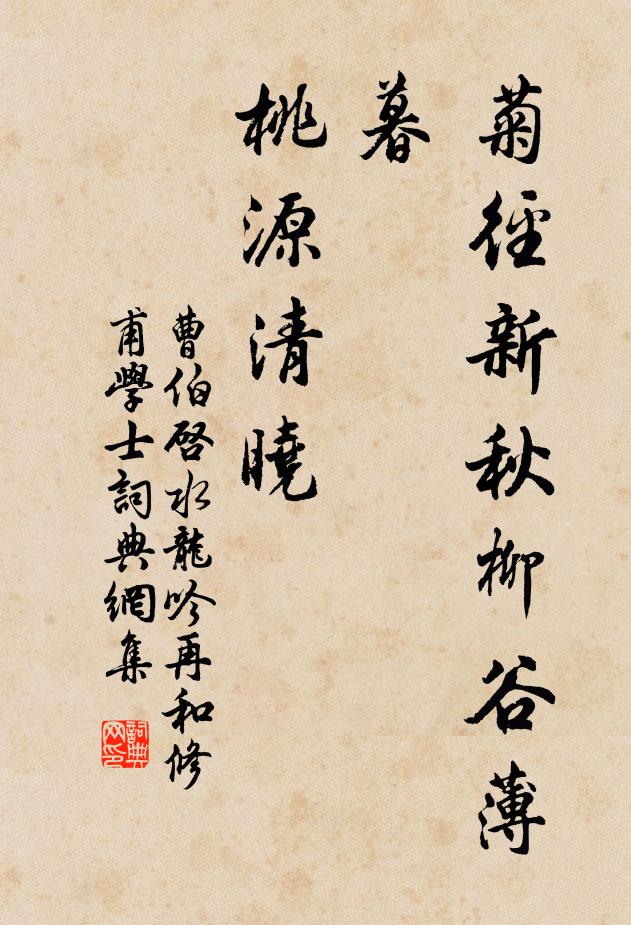 菊徑新秋柳谷薄
暮
桃源清曉
曹伯啓水龍吟再和修
甫學士詞典網集
詞典
网印